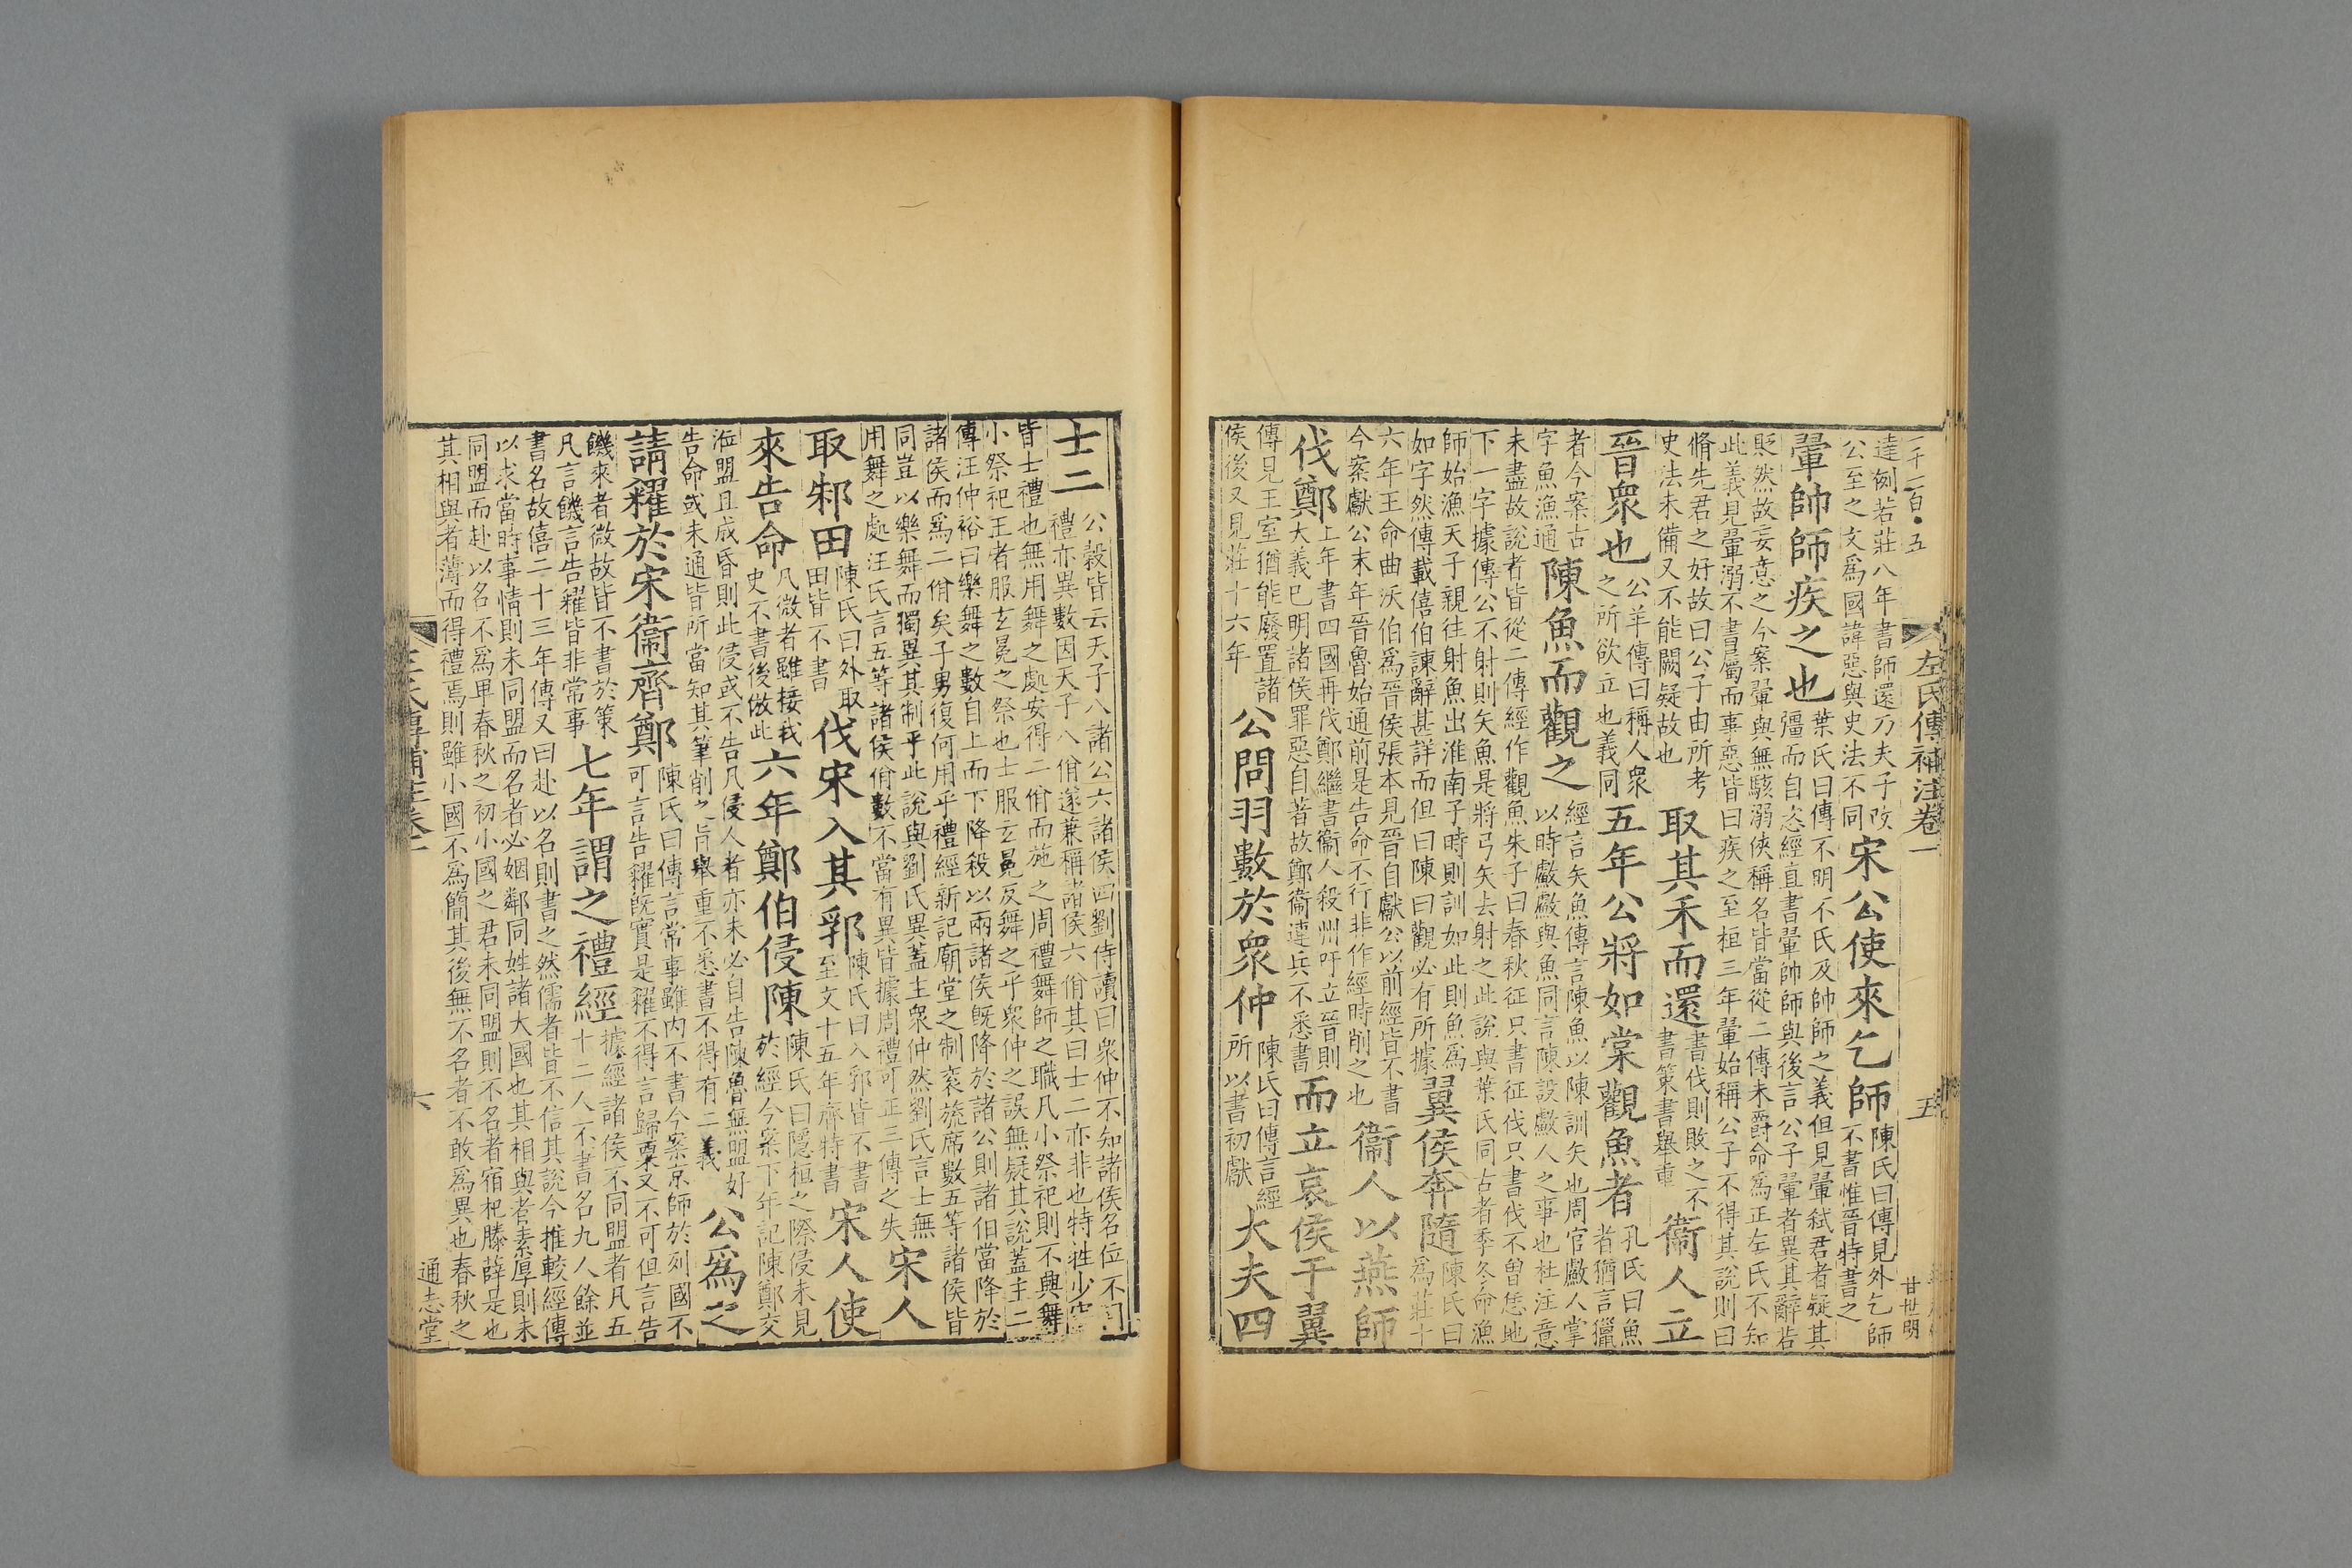 一千一百·五　左氏傳補注卷一　五　甘世明
達例若莊八年書師還乃夫子攺
公至之文爲國諱惡與史法不同
宋公使來乞師
陳氏曰傳見外乞師
不書惟晉特書之
翬帥師疾之也
葉氏曰傳不明不氏及帥師之義但見翬弑君者疑其
彊而自恣經直書翬帥師與後言公子翬者異其辭若
貶然故妄意之今案翬與無駭溺俠稱名皆當從二傳未爵命爲正左氏不知
此義見翬溺不書屬而事惡皆曰疾之至桓三年翬始稱公子不得其說則曰
脩先君之好故曰公子由所考
史法未備又不能闕疑故也
取其禾而還
書伐則敗之不
書策書舉重
衞人立
晉衆也
公羊傳曰稱人衆
之所欲立也義同
五年公將如棠觀魚者
孔氏曰魚
者猶言獵
者今案古
字魚漁通
陳魚而觀之
經言矢魚傳言陳魚以陳訓矢也周官䱷人掌
以時䱷䱷與魚同言陳設䱷人之事也杜注意
未盡故說者皆從二傳經作觀魚朱子曰春秋征只書征伐只書伐不曾恁地
下一字據傳公不射則矢魚是將弓矢去射之此說與葉氏同古者季冬命漁
師始漁天子親往射魚出淮南子時則訓如此則魚爲
如字然傳載僖伯諫辭甚詳而但曰陳曰觀必有所據
翼侯奔隨
陳氏曰
爲莊十
六年王命曲沃伯爲晉侯張本見晉自獻公以前經皆不書
今案獻公末年晉魯始通前是告命不行非作經時削之也
衞人以燕師
伐鄭
上年書四國再伐鄭繼書衞人殺州吁立晉則
大義已明諸侯罪惡自著故鄭衞連兵不悉書
而立哀侯于翼
傳見王室猶能廢置諸
侯後又見莊十六年
公問羽數於衆仲
陳氏曰傳言經
所以書初獻
大夫四
士二
公穀皆云天子八諸公六諸侯四劉侍讀曰衆仲不知諸侯名位不同
禮亦異數因天子八佾遂兼稱諸侯六佾其曰士二亦非也特牲少牢
皆士禮也無用舞之處安得二佾而施之周禮舞師之職凡小祭祀則不興舞
小祭祀王者服玄冕之祭也士服玄冕反舞之乎衆仲之誤無疑其說蓋主二
傳汪仲裕曰樂舞之數自上而下降殺以兩諸侯旣降於諸公則諸伯當降於
諸侯而爲二佾矣子男復何用乎禮經新記廟堂之制衮旒席數五等諸侯皆
同豈以樂舞而獨異其制乎此說與劉氏異蓋主衆仲然劉氏言士無
用舞之處汪氏言五等諸侯佾數不當有異皆據周禮可正三傳之失
宋人
取邾田
陳氏曰外取
田皆不書
伐宋入其郛
陳氏曰入郛皆不書
至文十五年齊特書
宋人使
來告命
凡微者雖接我
史不書後倣此
六年鄭伯侵陳
陳氏曰隱桓之際侵未見
於經今案下年記陳鄭交
涖盟且成昏則此侵或不告凡侵人者亦未必自告陳魯無盟好
告命或未通皆所當知其筆削之旨舉重不悉書不得有二義
公爲之
請糴於宋衞齊鄭
陳氏曰傳言常事雖内不書今案京師於列國不
可言告糴旣實是糴不得言歸粟又不可但言告
饑來者微故皆不書於策
凡言饑言告糴皆非常事
七年謂之禮經
據經諸侯不同盟者凡五
十二人不書名九人餘並
書名故僖二十三年傳又曰赴以名則書之然儒者皆不信其說今推較經傳
以求當時事情則未同盟而名者必姻鄰同姓諸大國也其相與者素厚則未
同盟而赴以名不爲卑春秋之初小國之君未同盟則不名者宿杞滕薛是也
其相與者薄而得禮焉則雖小國不爲簡其後無不名者不敢爲異也春秋之
左氏傳補注卷一　六　通志堂